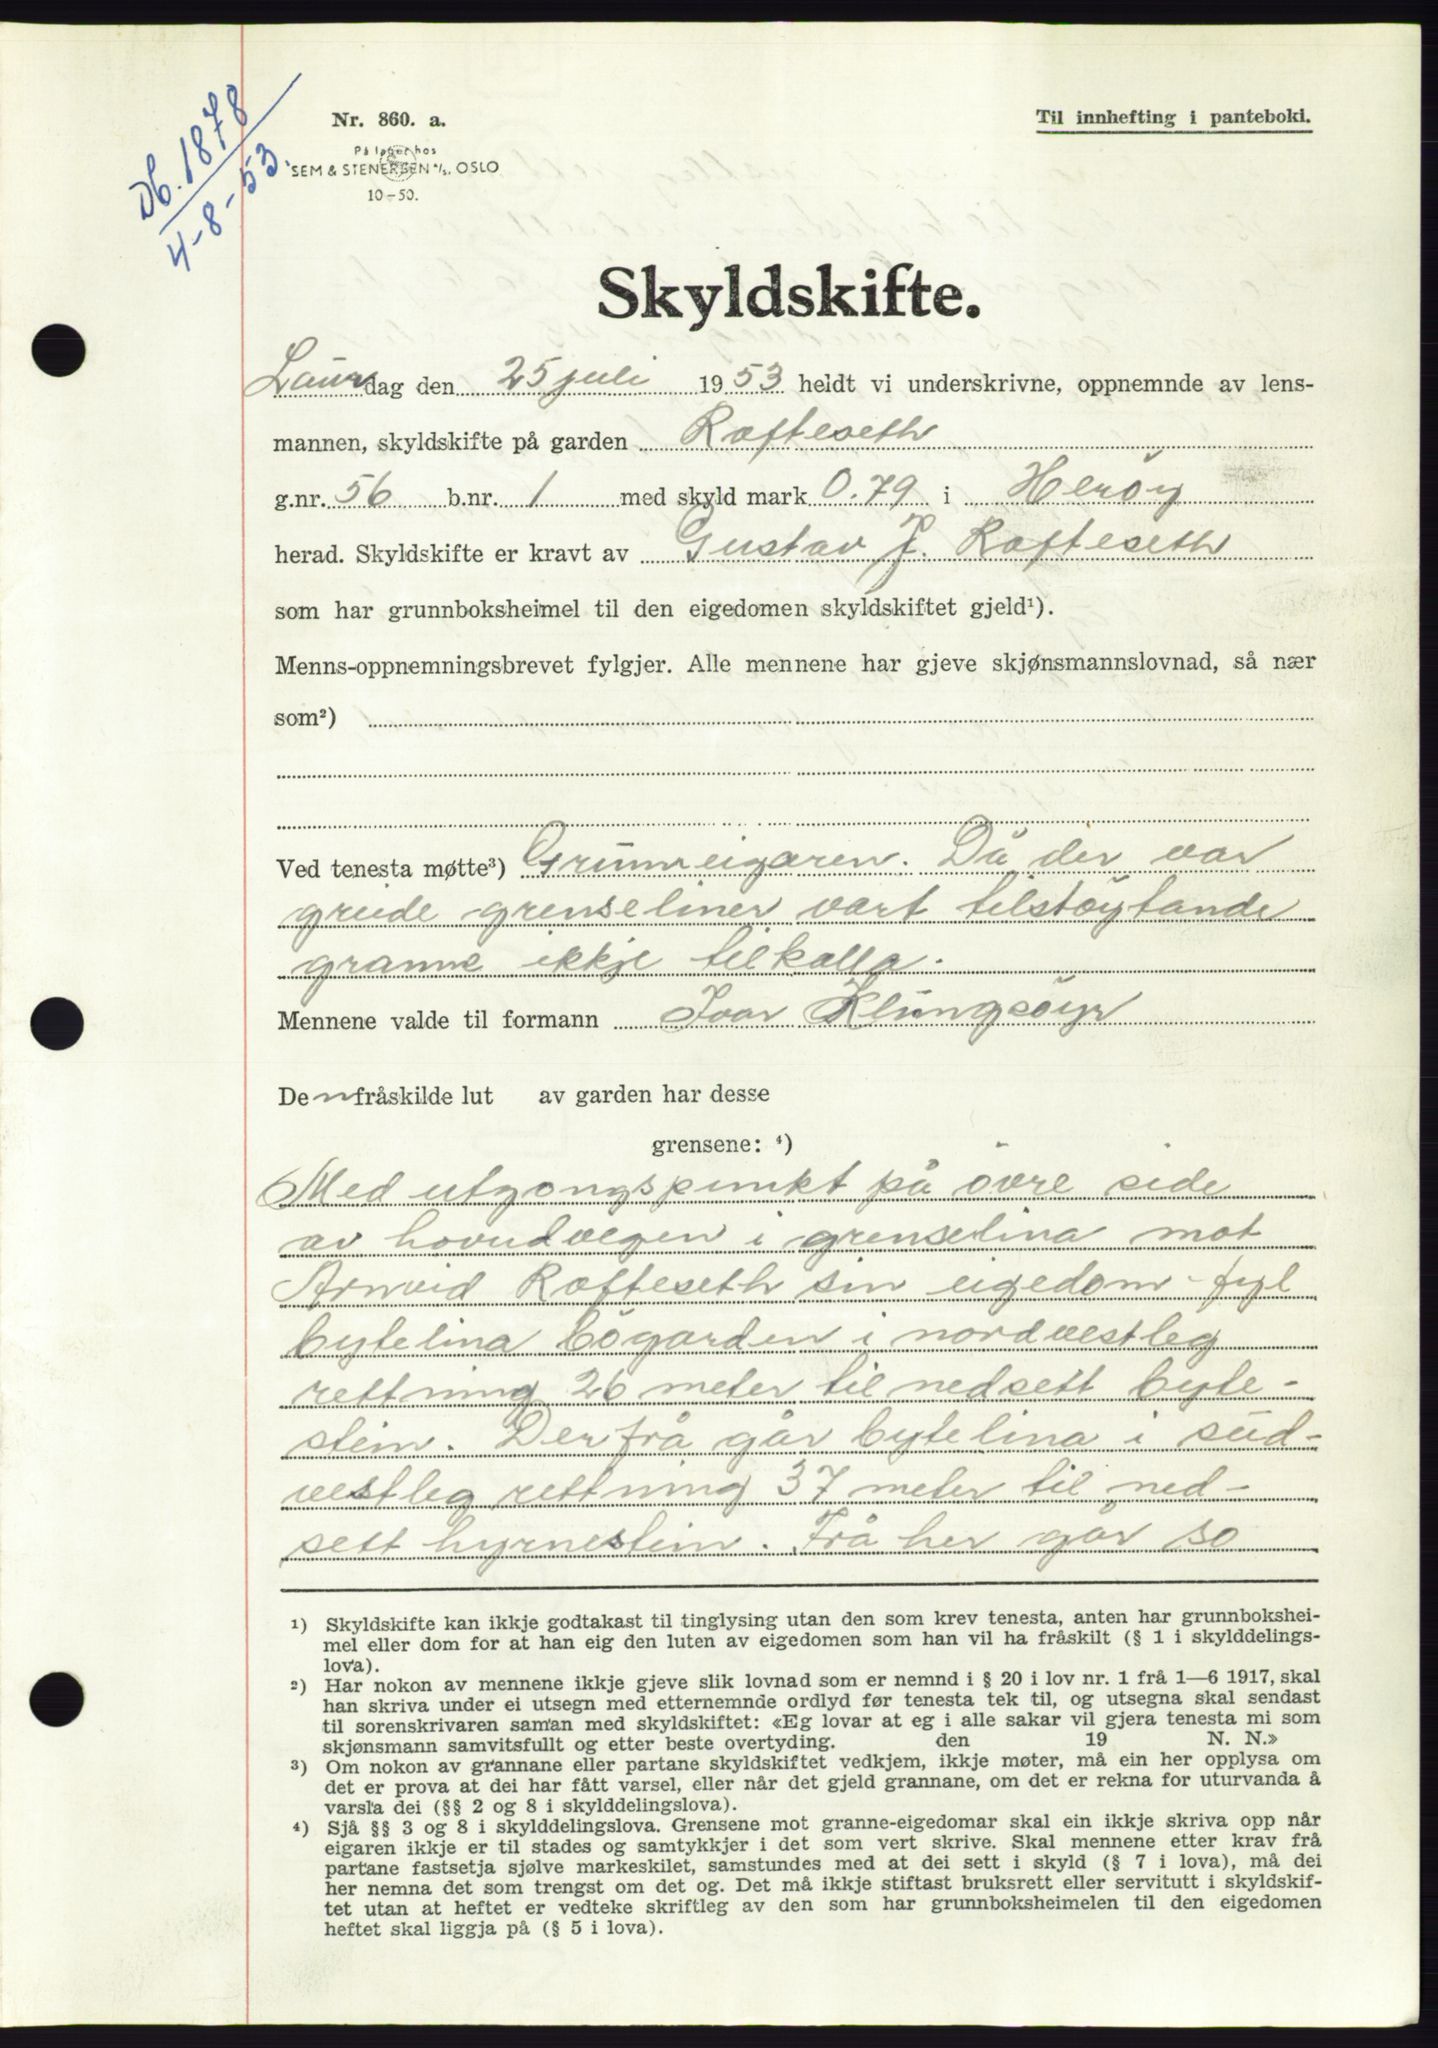 Db. 1878
4-8-53.
Nr. 860. a.
På lager hos
SEM & STENERSEN A/S. OSLO
10-50.
Til innhefting i panteboki.
Skyldskifte.
Laurdag den 25 juli 1953 heldt vi underskrivne, oppnemnde av lens-
mannen, skyldskifte på garden Rafteseth
g.nr. 56 b.nr. 1 med skyld mark 0.79 i Herøy
herad. Skyldskifte er kravt av Gustav J. Rafteseth
som har grunnboksheimel til den eigedomen skyldskiftet gjeld¹).
Menns-oppnemningsbrevet fylgjer. Alle mennene har gjeve skjønsmannslovnad, så nær
som²)
Ved tenesta møtte³) Grunneigaren. Då der var
greide grenseliner vart tilstöytande
granne ikkje tilkalla.
Mennene valde til formann Ivar Klungsöyr
Den fråskilde lut av garden har desse
grensene: ⁴)
Med utgongspunkt på övre side
av hovudvegen i grenselina mot
Arnvid Rafteseth sin eigedom fyl
bytelina bögarden i nordvestleg
rettning 26 meter til nedsett byte-
stein. Derfrå går bytelina i sud-
vestleg rettning 37 meter til ned-
sett hyrnestein. Frå her går so
¹) Skyldskifte kan ikkje godtakast til tinglysing utan den som krev tenesta, anten har grunnbokshei-
mel eller dom for at han eig den luten av eigedomen som han vil ha fråskilt (§ 1 i skylddelings-
lova).
²) Har nokon av mennene ikkje gjeve slik lovnad som er nemnd i § 20 i lov nr. 1 frå 1—6 1917, skal
han skriva under ei utsegn med etternemnde ordlyd før tenesta tek til, og utsegna skal sendast
til sorenskrivaren saman med skyldskiftet: «Eg lovar at eg i alle sakar vil gjera tenesta mi som
skjønsmann samvitsfullt og etter beste overtyding. den 19 N. N.»
³) Om nokon av grannane eller partane skyldskiftet vedkjem, ikkje møter, må ein her opplysa om
det er prova at dei har fått varsel, eller når det gjeld grannane, om det er rekna for uturvanda å
varsla dei (§§ 2 og 8 i skylddelingslova).
⁴) Sjå §§ 3 og 8 i skylddelingslova. Grensene mot granne-eigedomar skal ein ikkje skriva opp når
eigaren ikkje er til stades og samtykkjer i det som vert skrive. Skal mennene etter krav frå
partane fastsetja sjølve markeskilet, samstundes med at dei sett i skyld (§ 7 i lova), må dei
her nemna det som trengst om det og. Det må ikkje stiftast bruksrett eller servitutt i skyldskif-
tet utan at heftet er vedteke skriftleg av den som har grunnboksheimelen til den eigedomen
heftet skal liggja på (§ 5 i lova).